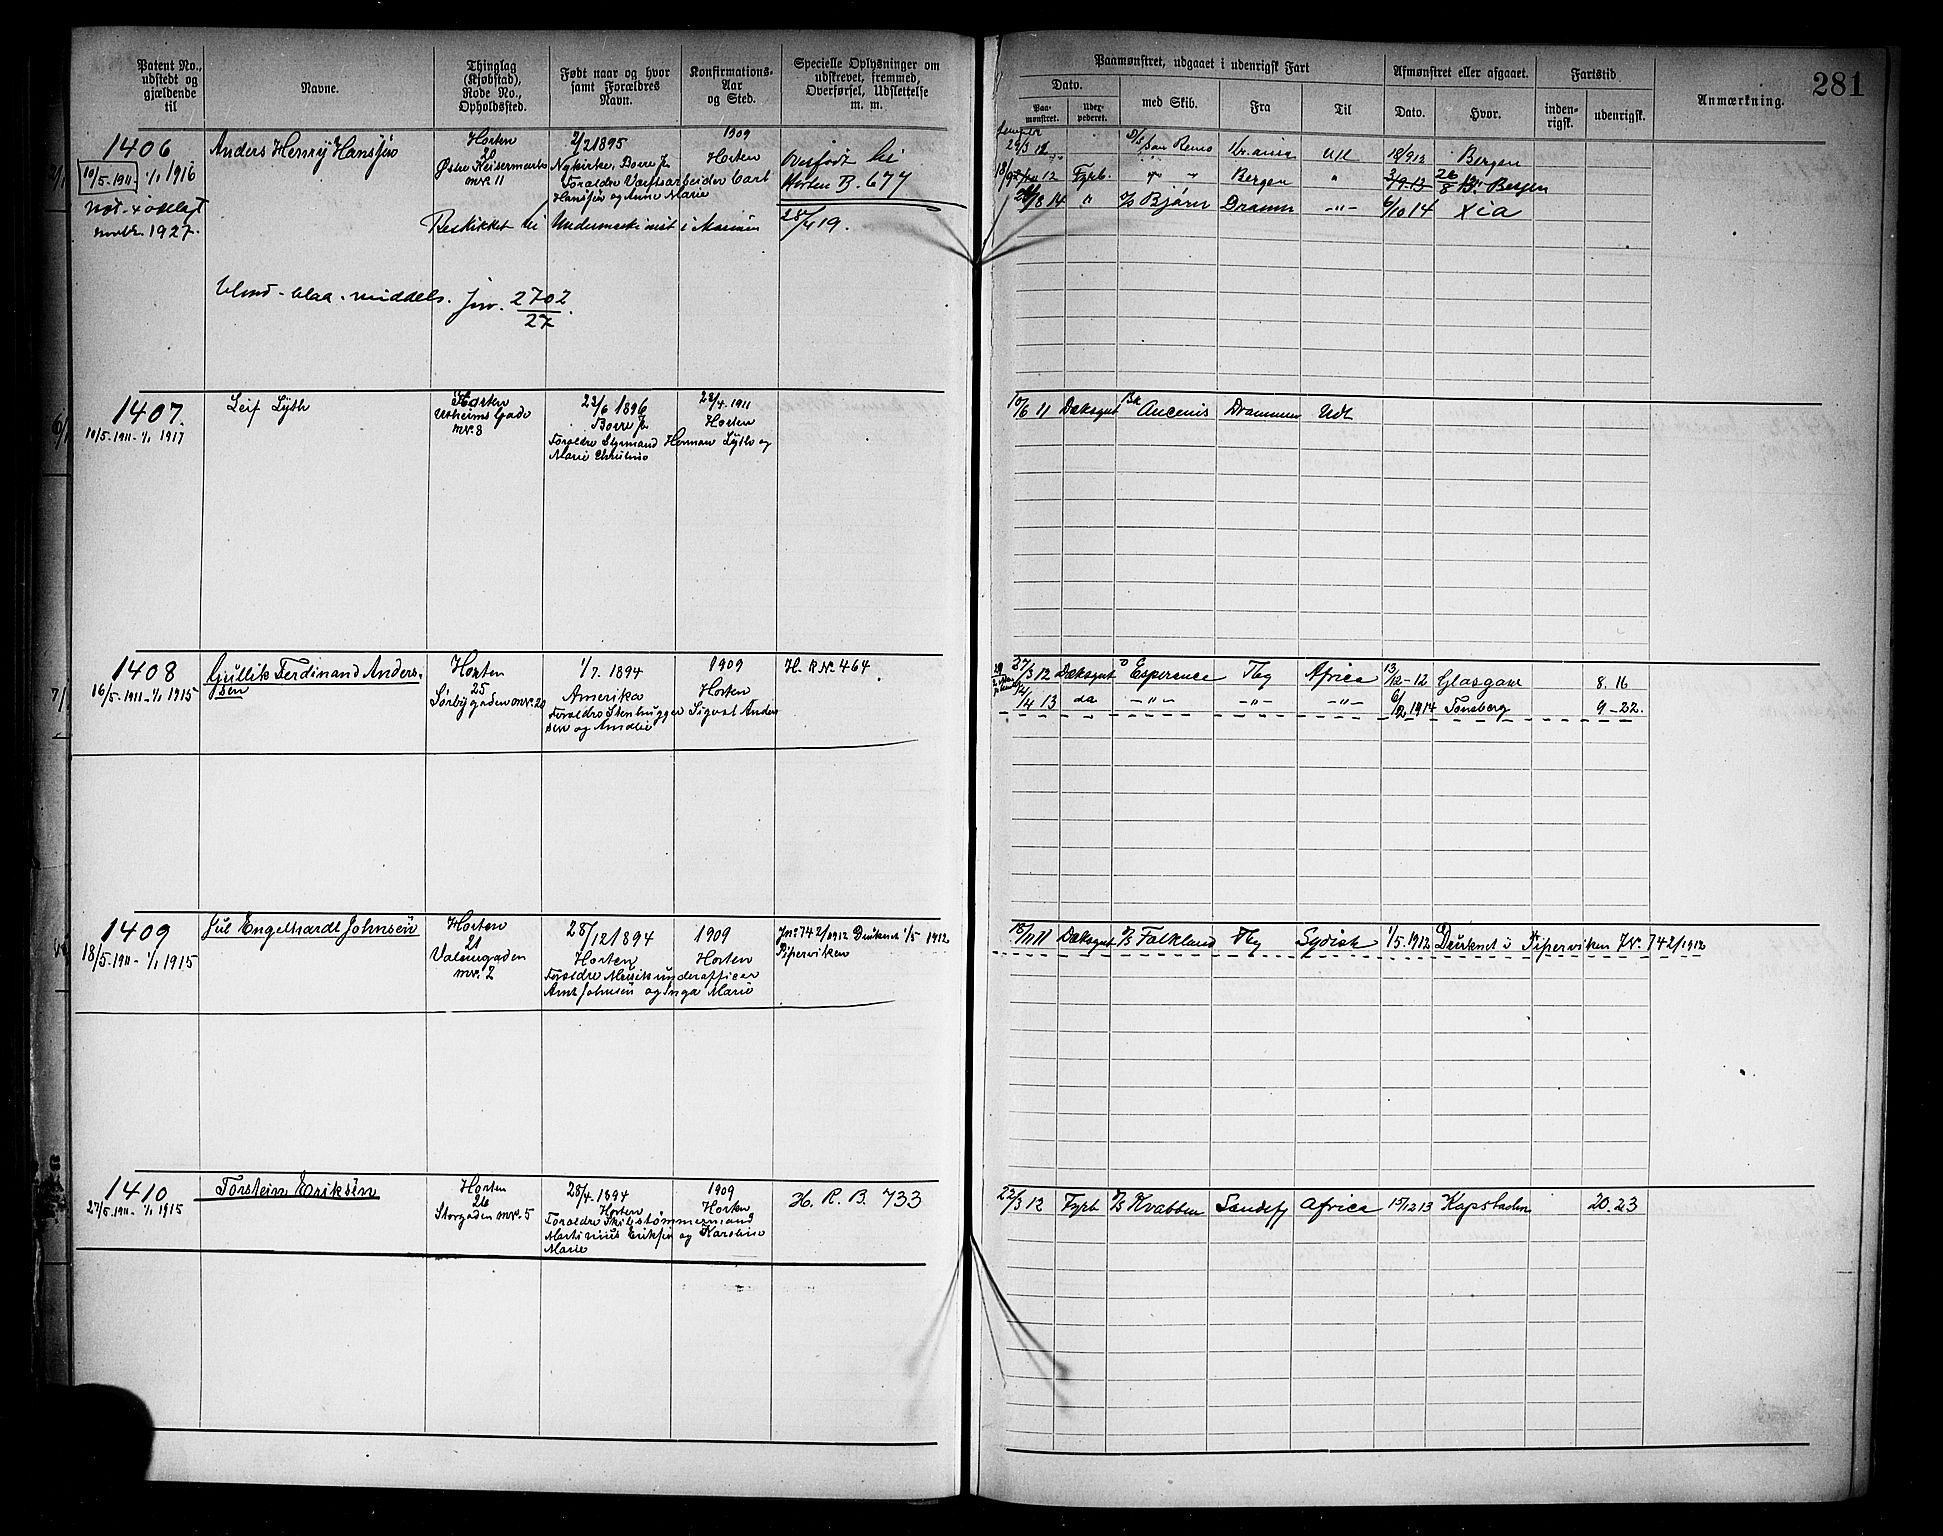 Patent No., udstedt og gjældende til
Navne.
Thinglag (Kjøbstad), Rode No., Opholdssted.
Født naar og hvor samt Forældres Navn.
Konfirmations-Aar og Sted.
Specielle Oplysninger om udskrevet, fremmed, Overførsel, Udslettelse m. m.
Paamønstret, udgaaet i udenrigsk Fart
Dato.
Paamønstret.
med Skib.
Fra
Til
Afmønstret eller afgaaet.
Dato.
Hvor.
Fartstid.
indenrigsk.
udenrigsk.
Anmærkning.
281
1406
10/5.1911-1/1 1916
1927.
Anders Henry Hanssen
Horten
20
Østre Keisermarks
nr. 11
2/2 1895
Nykirke, Borre P.
Forældre Værftsarbeider Carl
Hanssen og Anne Marie
1909
Horten
Overført til
Horten B. 677
Beskikket til Undermaskinist i Marinen 28/4 19.
blond - blaa - middels. Jnr. 2702
27
29/3 12 San Remo Kr.ania Udl 18/9 12 Bergen
12 Fyrb. " " Bergen " 3/9.13 26/8 13. Bergen
28/8 14 " Bjørn Dramm -"- 6/10 14 Xia
1407.
10/5.1911-1/1 1917
Leif Lyth
Horten
Gade
nr. 8
22/6 1896
Borre P.
Forældre Styrmand Herman Lyth og
Marie
23/4.1911
Horten
10/6 11 Dæksgut Bk Ancenis Drammen Udl
1408
16/5.1911-1/1 1915
Gjullik Ferdinand Anders-
sen
Horten
25
Sørbygaden nr. 20
1/7. 1894
Amerika
Forældre Stenhugger Sigvart Anders
sen og Amalie
1909
Horten
H. R. No. 464
27/3 12 Dæksgut Esperance Tbg Africa 13/12-12 Glasgow 8. 16
14/4 13 do -"- -"- -"- 6/2 1914 Tønsberg 9-22.
1409
18/5.1911-1/1 1915
Jul Engelhardt Johnsen
Horten
21
nr. 2
28/12 1894
Horten
Forældre Musikunderofficer
Arnt Johnsen og Inga Marie
1909
Horten
Jnr 742/1912 Druknet 1/5 1912
Piperviken
18/11 11 Dæksgut Falkland Tbg Sydish 1/5.1912 Druknet i Piperviken JN. 742/1912
1410
27/5.1911-1/1 1915
Torstein Eriksen
Horten
26
Storgaden nr. 5
28/4.1894
Horten
Forældre Skibstømmermand
Martinius Eriksen og Karoline
Marie
1909
Horten
H. R. B. 733
22/3 12 Fyrb Kvabben Sandefj Africa 15/12 13 Kapstaden 20.23